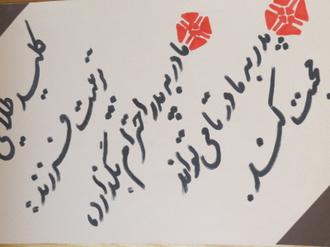 کلید طلایی
تربیت فرزند:
مادر به پدر احترام بگذارد،
پدر به مادر تا می تواند
محبت کند.